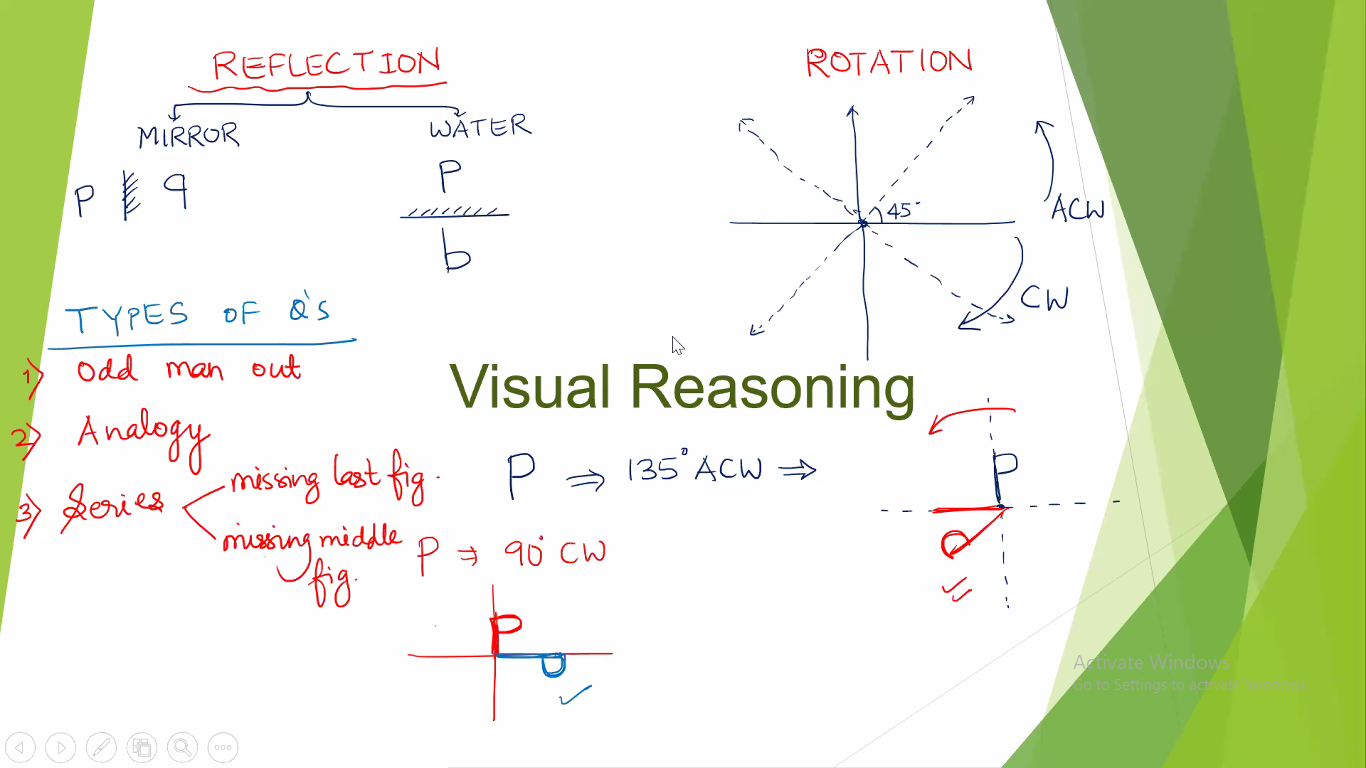 REFLECTION
MIRROR
WATER
P q
P
b
ROTATION
45°
ACW
CW
TYPES OF Q's
1) Odd man out
2) Analogy
3) Series
missing last fig.
missing middle
fig.
Visual Reasoning
P ⇒ 135° ACW ⇒
P
P ⇒ 90° CW
P
Activate Windows
Go to Settings to activate Windows.